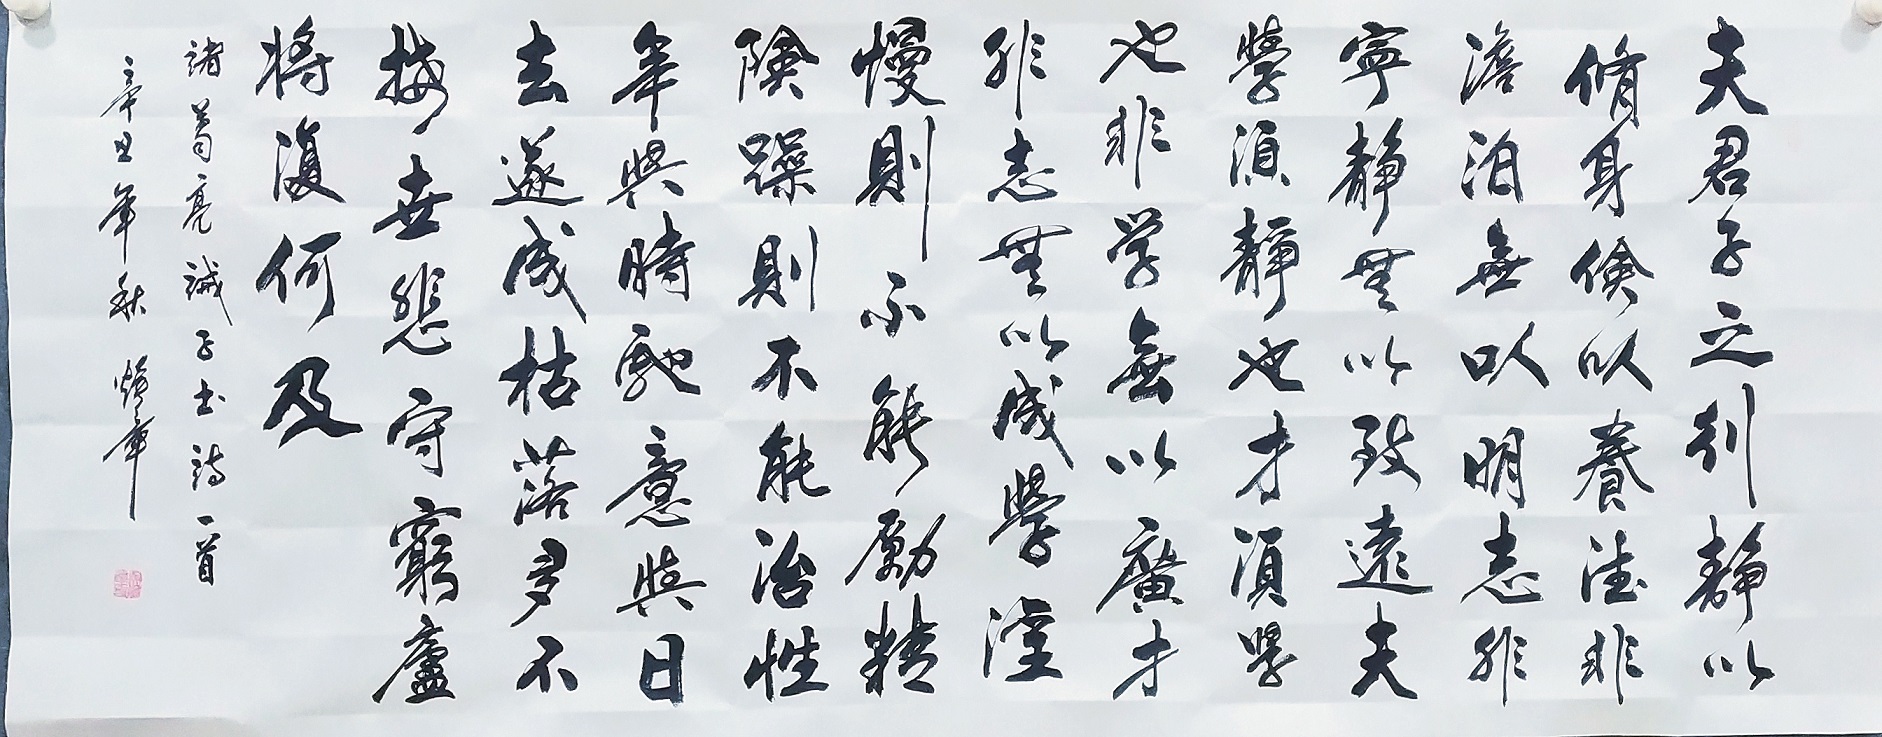 夫君子之行靜以
脩身儉以養德非
澹泊無以明志非
寧靜無以致遠夫
學須靜也才須學
也非学無以廣才
非志無以成學淫
慢則不能勵精
險躁則不能治性
年與時馳意與日
去遂成枯落多不
接世悲守窮廬
將復何及
諸葛亮誡子书詩一首
辛丑年秋